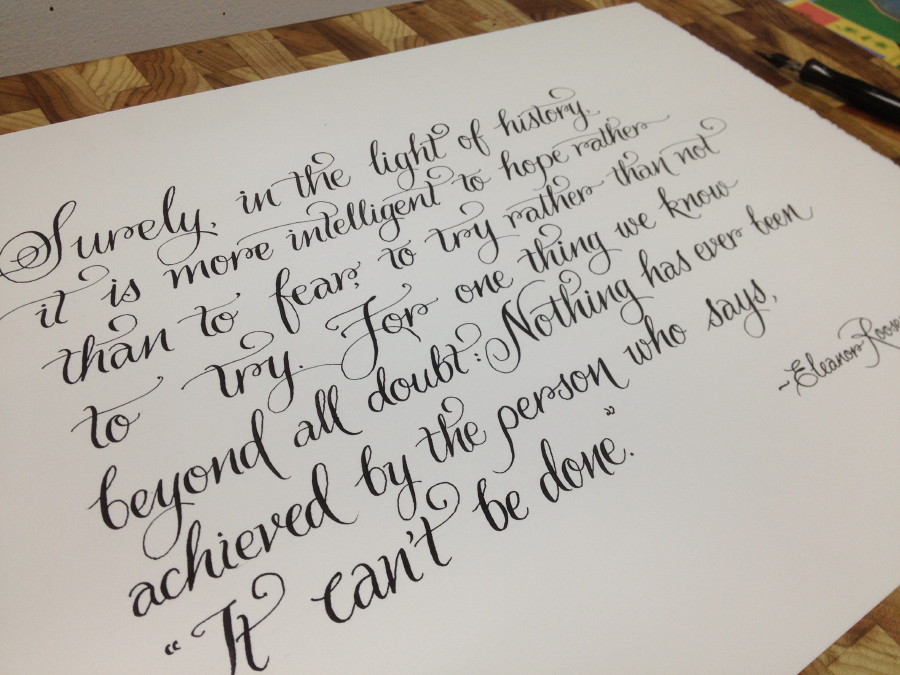 Surely, in the light of history,
it is more intelligent to hope rather
than to fear, to try rather than not
to try. For one thing we know
beyond all doubt: Nothing has ever been
achieved by the person who says,
"It can't be done."
~Eleanor